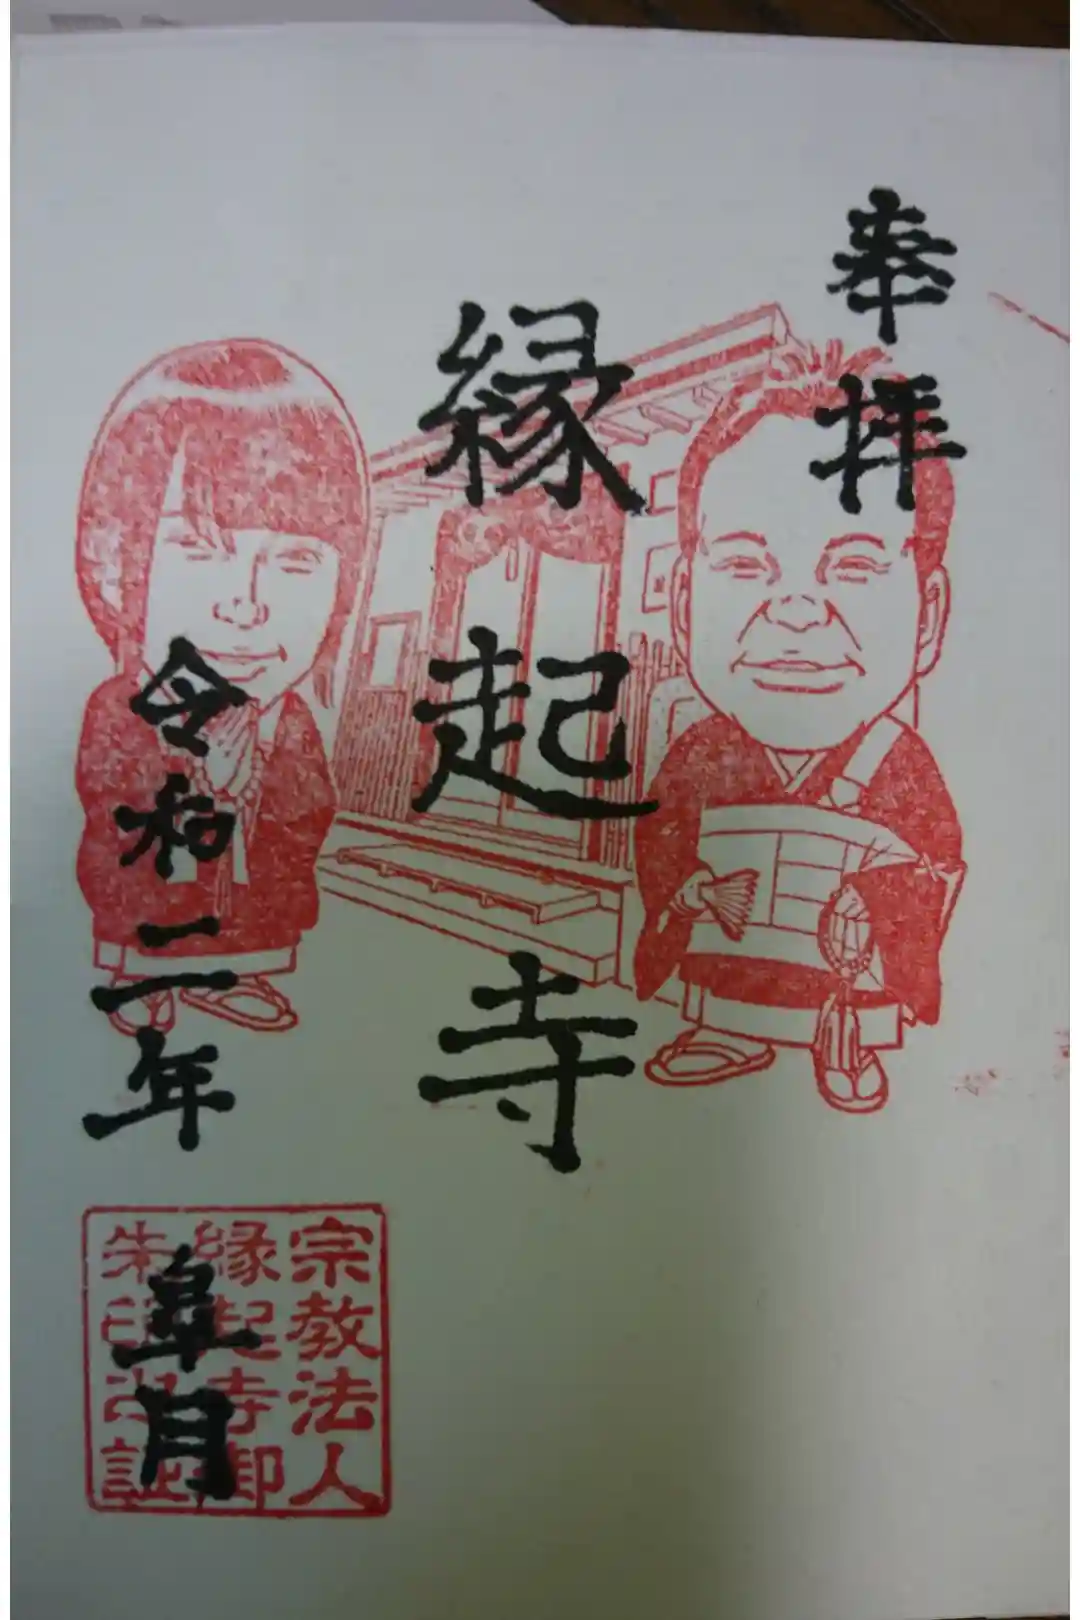 奉拝
縁起寺
令和二年
皐月
宗教法人
縁起寺御
朱印尚証